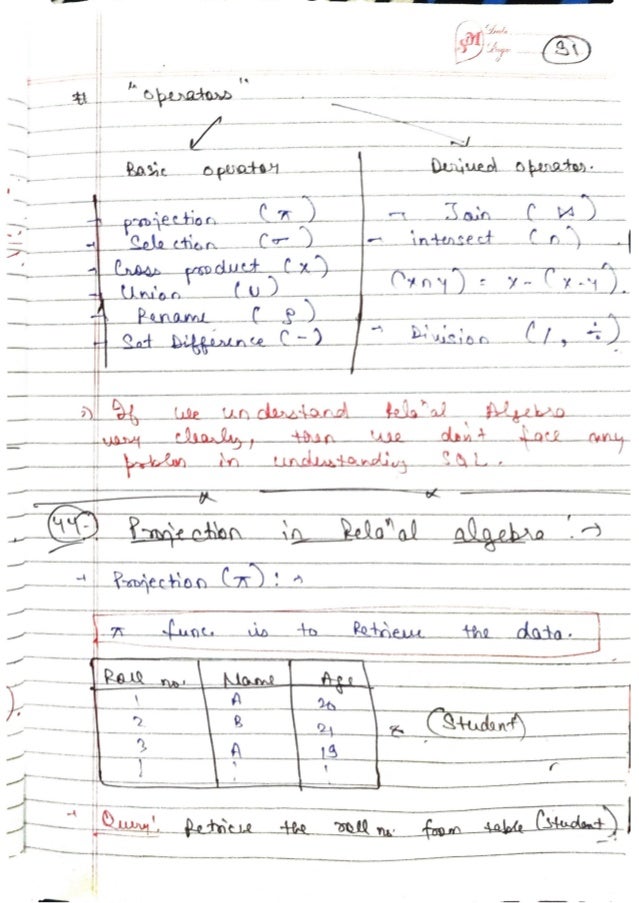 Date
Page
31
# "Operators"
Basic operator
Derived operator.
→ projection (π)
→ Selection (σ)
→ Cross product (×)
→ Union (∪)
→ Rename (ρ)
→ Set Difference (-)
→ Join (⋈)
→ intersect (∩)
(x∩y) = x-(x-y).
→ Division (/, ÷)
If we understand Rela^nal Algebra
very clearly, then we don't face any
problem in understanding SQL.
44. Projection in Rela^nal algebra :→
→ Projection (π) :→
π func. is to Retrieve the data.
Roll no. Name Age
1 A 20
2 B 21
3 A 19
(Student)
→ Query: Retrieve the roll no. from table (Student)